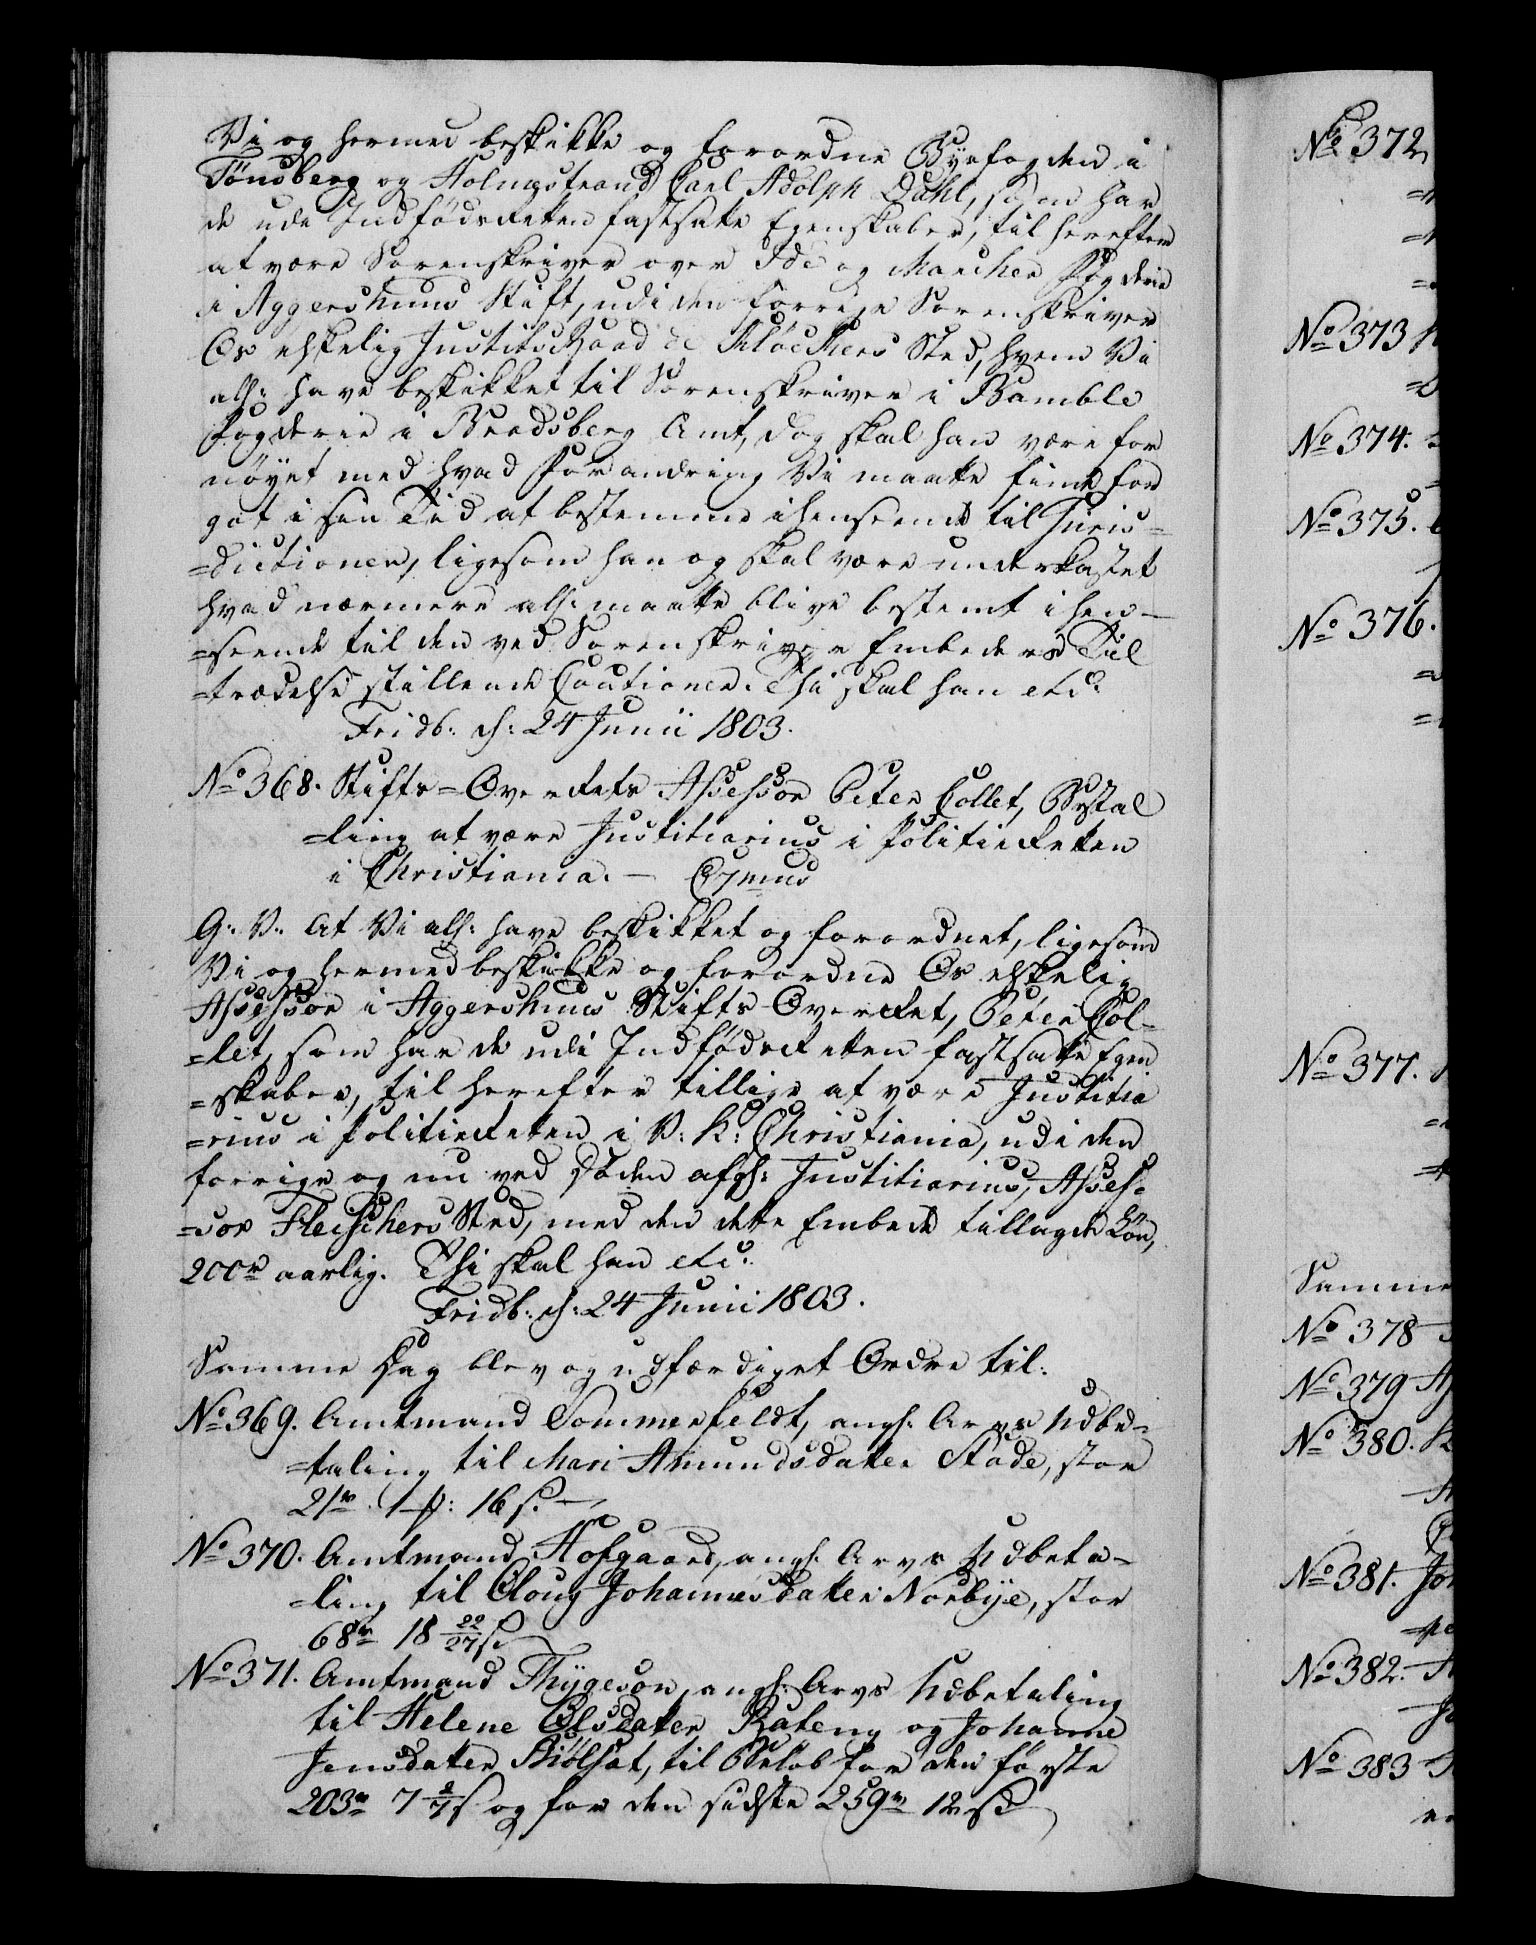 Vi og hermed beskikke og forordne Byefogden i
Tønsberg og Holmestrand Carl Adolph Dahl, som har
de udi Indfødsretten fastsatte Egenskaber, til herefter
at være Sorenskriver over Ide og Marcher Fogderie
i Aggershuus Stift, udi den forrige Sorenskriver
Os elskelig Justitsraad de Kløckers Sted, hvem Vi
alh: have beskikket til Sorenskriver i Bamble
Fogderie i Bradsberg Amt, dog skal han være for
nøyet med hvad Forandring Vi maatte finde for
got i sin Tid at bestemme i henseende til Juris=
=dictionen, ligesom han og skal være underkastet
hvad nærmere alh: maatte blive bestemt i hen=
=seende til den ved Sorenskriver Embeders Til
=trædelse stillende Cautioner. Thi skal han etc:
Fridb: d: 24 Junii 1803.
No 368. Stifts=Overrets Assessor Peter Collet, Bestal
=ling at være Justitiarius i Politieretten
i Christiania. —
G: V: At Vi alh: have beskikket og forordnet, ligesom
Vi og hermed beskikke og forordne Os elskelig
Assessor i Aggershuus Stifts Overret, Peter Col=
=let, som har de udi Indfødsretten fastsatte Egen
=skaber, til herefter tillige at være Justitia
=rius i Politieretten i V: K: Christiania, udi den
forrige og nu ved Døden afg: Justitiarius, Asses=
=sor Fleischers Sted, med den dette Embede tillagde Løn,
200r aarlig. Thi skal han etc:
Fridb: d: 24 Junii 1803.
Samme Dag blev og udfærdiget Ordre til:
No 369. Amtmand Sommerfeldt, ang: Arvs Udbe=
=taling til Mari Amundsdatter Stade, stor
21r 1 p: 16 s. —
No 370. Amtmand Hofgaard, ang: Arvs Udbeta=
=ling til Oloug Johannesdatter Norbye, stor
68r 18 22/27 s
No 371. Amtmand Thygeson, ang: Arvs Udbetaling
til Helene Olsdatter Rateng og Johanne
Jensdatter, til Beløb for den første
203r 7 2/7 s og for den sidste 259r 12 s
No 372
No 373
No 374.
No 375.
No 376.
No 377.
Samme
No 378
No 379
No 380.
No 381.
No 382.
No 383